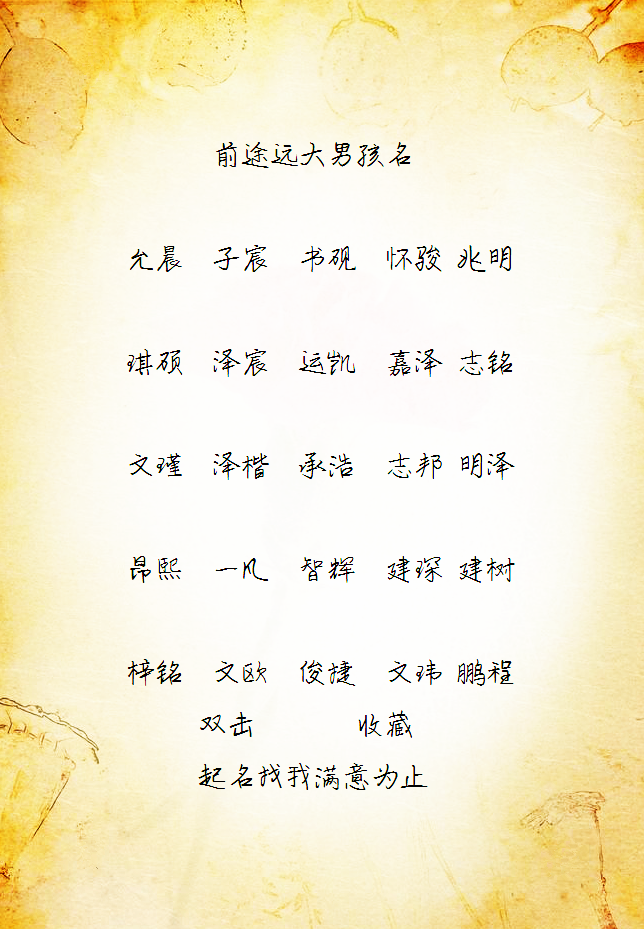 前途远大男孩名
允晨 子宸 书砚 怀骏 兆明
琪硕 泽宸 运凯 嘉泽 志铭
文瑾 泽楷 承浩 志邦 明泽
昂熙 一凡 智辉 建琛 建树
梓铭 文欧 俊捷 文玮 鹏程
双击 收藏
起名找我满意为止